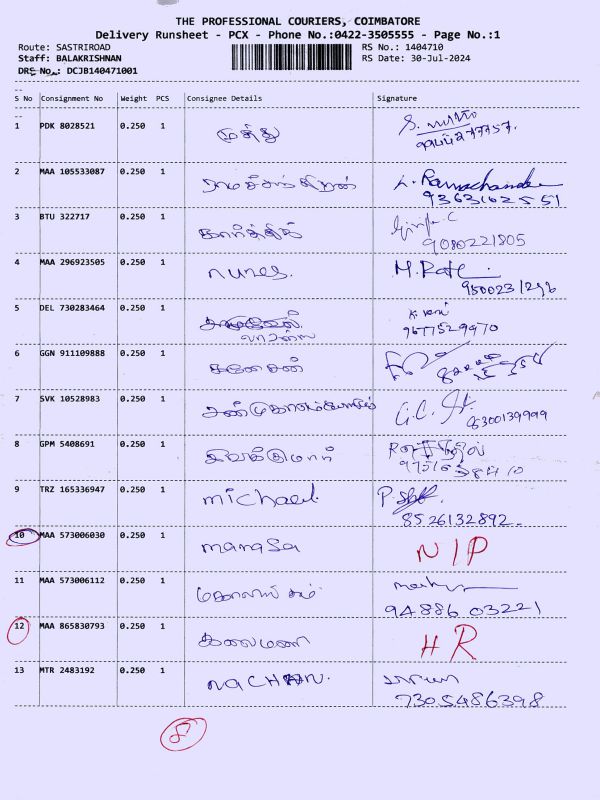 THE PROFESSIONAL COURIERS, COIMBATORE
Delivery Runsheet - PCX - Phone No.:0422-3505555 - Page No.:1
Route: SASTRIROAD RS No.: 1404710
Staff: BALAKRISHNAN RS Date: 30-Jul-2024
DRS No.: DCJB140471001
S No Consignment No Weight PCS Consignee Details Signature
1 PDK 8028521 0.250 1 முத்து
2 MAA 105533087 0.250 1 ராமச்சந்திரன் Ramachandran
9363162551
3 BTU 322717 0.250 1 கார்த்திக்
9080221805
4 MAA 296923505 0.250 1
5 DEL 730283464 0.250 1
9677529970
6 GGN 911109888 0.250 1 கணேசன்
7 SVK 10528983 0.250 1
8300139999
8 GPM 5408691 0.250 1 சிவக்குமார்
9 TRZ 165336947 0.250 1 michael
8526132892
10 MAA 573006030 0.250 1 manasa N/P
11 MAA 573006112 0.250 1
94886 03221
12 MAA 865830793 0.250 1 கலைமணி HR
13 MTR 2483192 0.250 1
7305486398
8